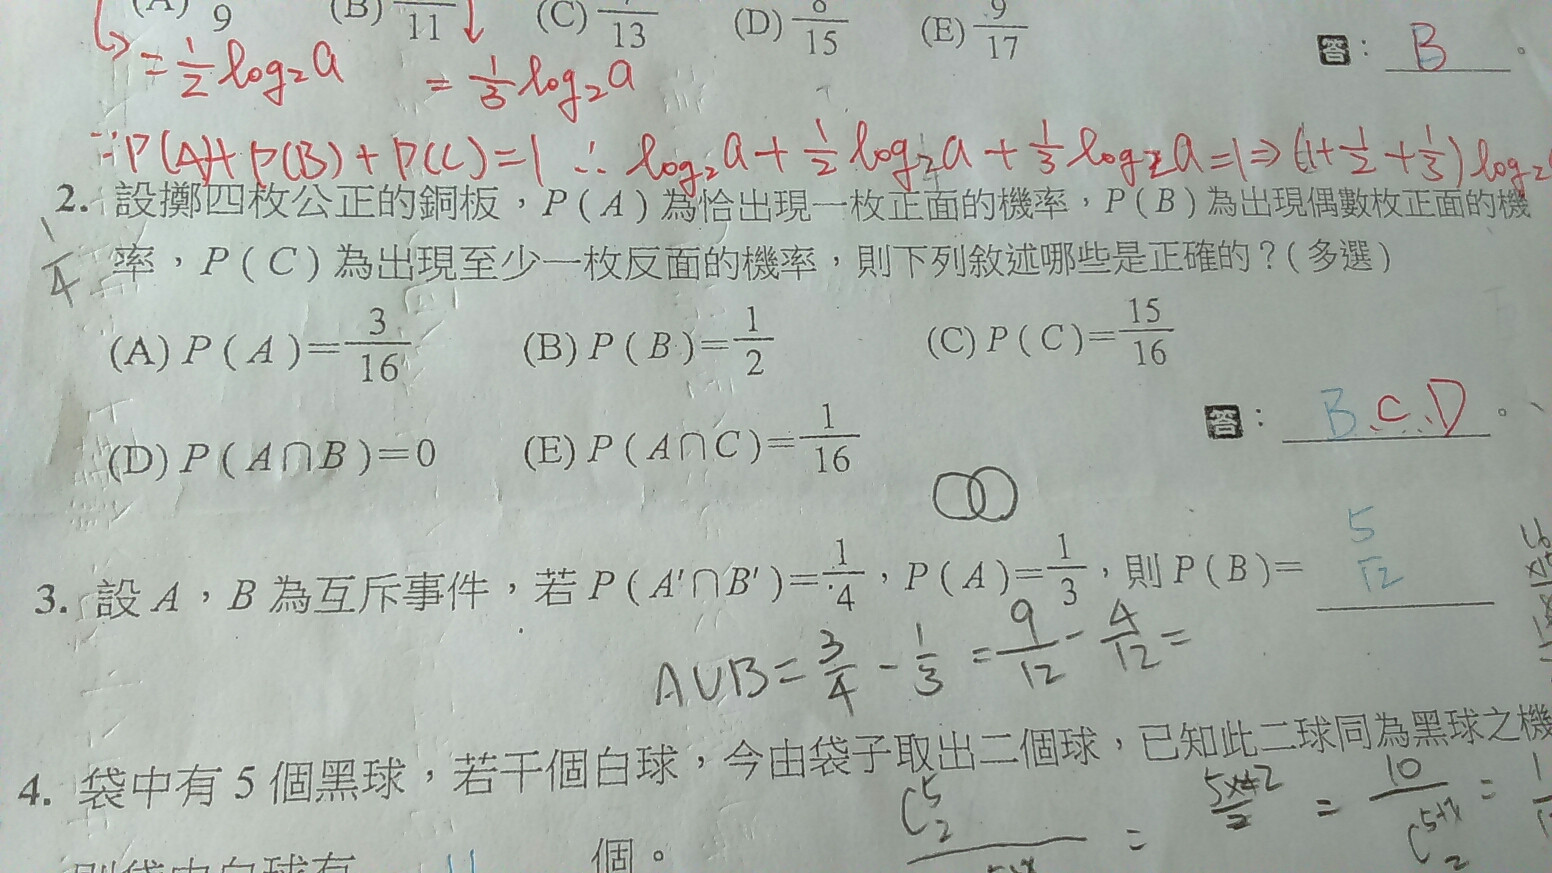 (A) 9 (B) 11 (C) 7/13 (D) 8/15 (E) 9/17
答： B 。
= 1/2 log₂a = 1/3 log₂a
∵P(A)+P(B)+P(C)=1 ∴ log₂a + 1/2 log₂a + 1/3 log₂a = 1 ⇒ (1+1/2+1/3) log₂
2. 設擲四枚公正的銅板，P(A)為恰出現一枚正面的機率，P(B)為出現偶數枚正面的機
1/4 率，P(C)為出現至少一枚反面的機率，則下列敘述哪些是正確的？(多選)
(A) P(A)=3/16 (B) P(B)=1/2 (C) P(C)=15/16
(D) P(A∩B)=0 (E) P(A∩C)=1/16
答： B.C.D 。
3. 設A，B為互斥事件，若P(A'∩B')=1/4，P(A)=1/3，則P(B)= 5/12
A∪B = 3/4 - 1/3 = 9/12 - 4/12 =
4. 袋中有5個黑球，若干個白球，今由袋子取出二個球，已知此二球同為黑球之機
則袋中白球有 11 個。